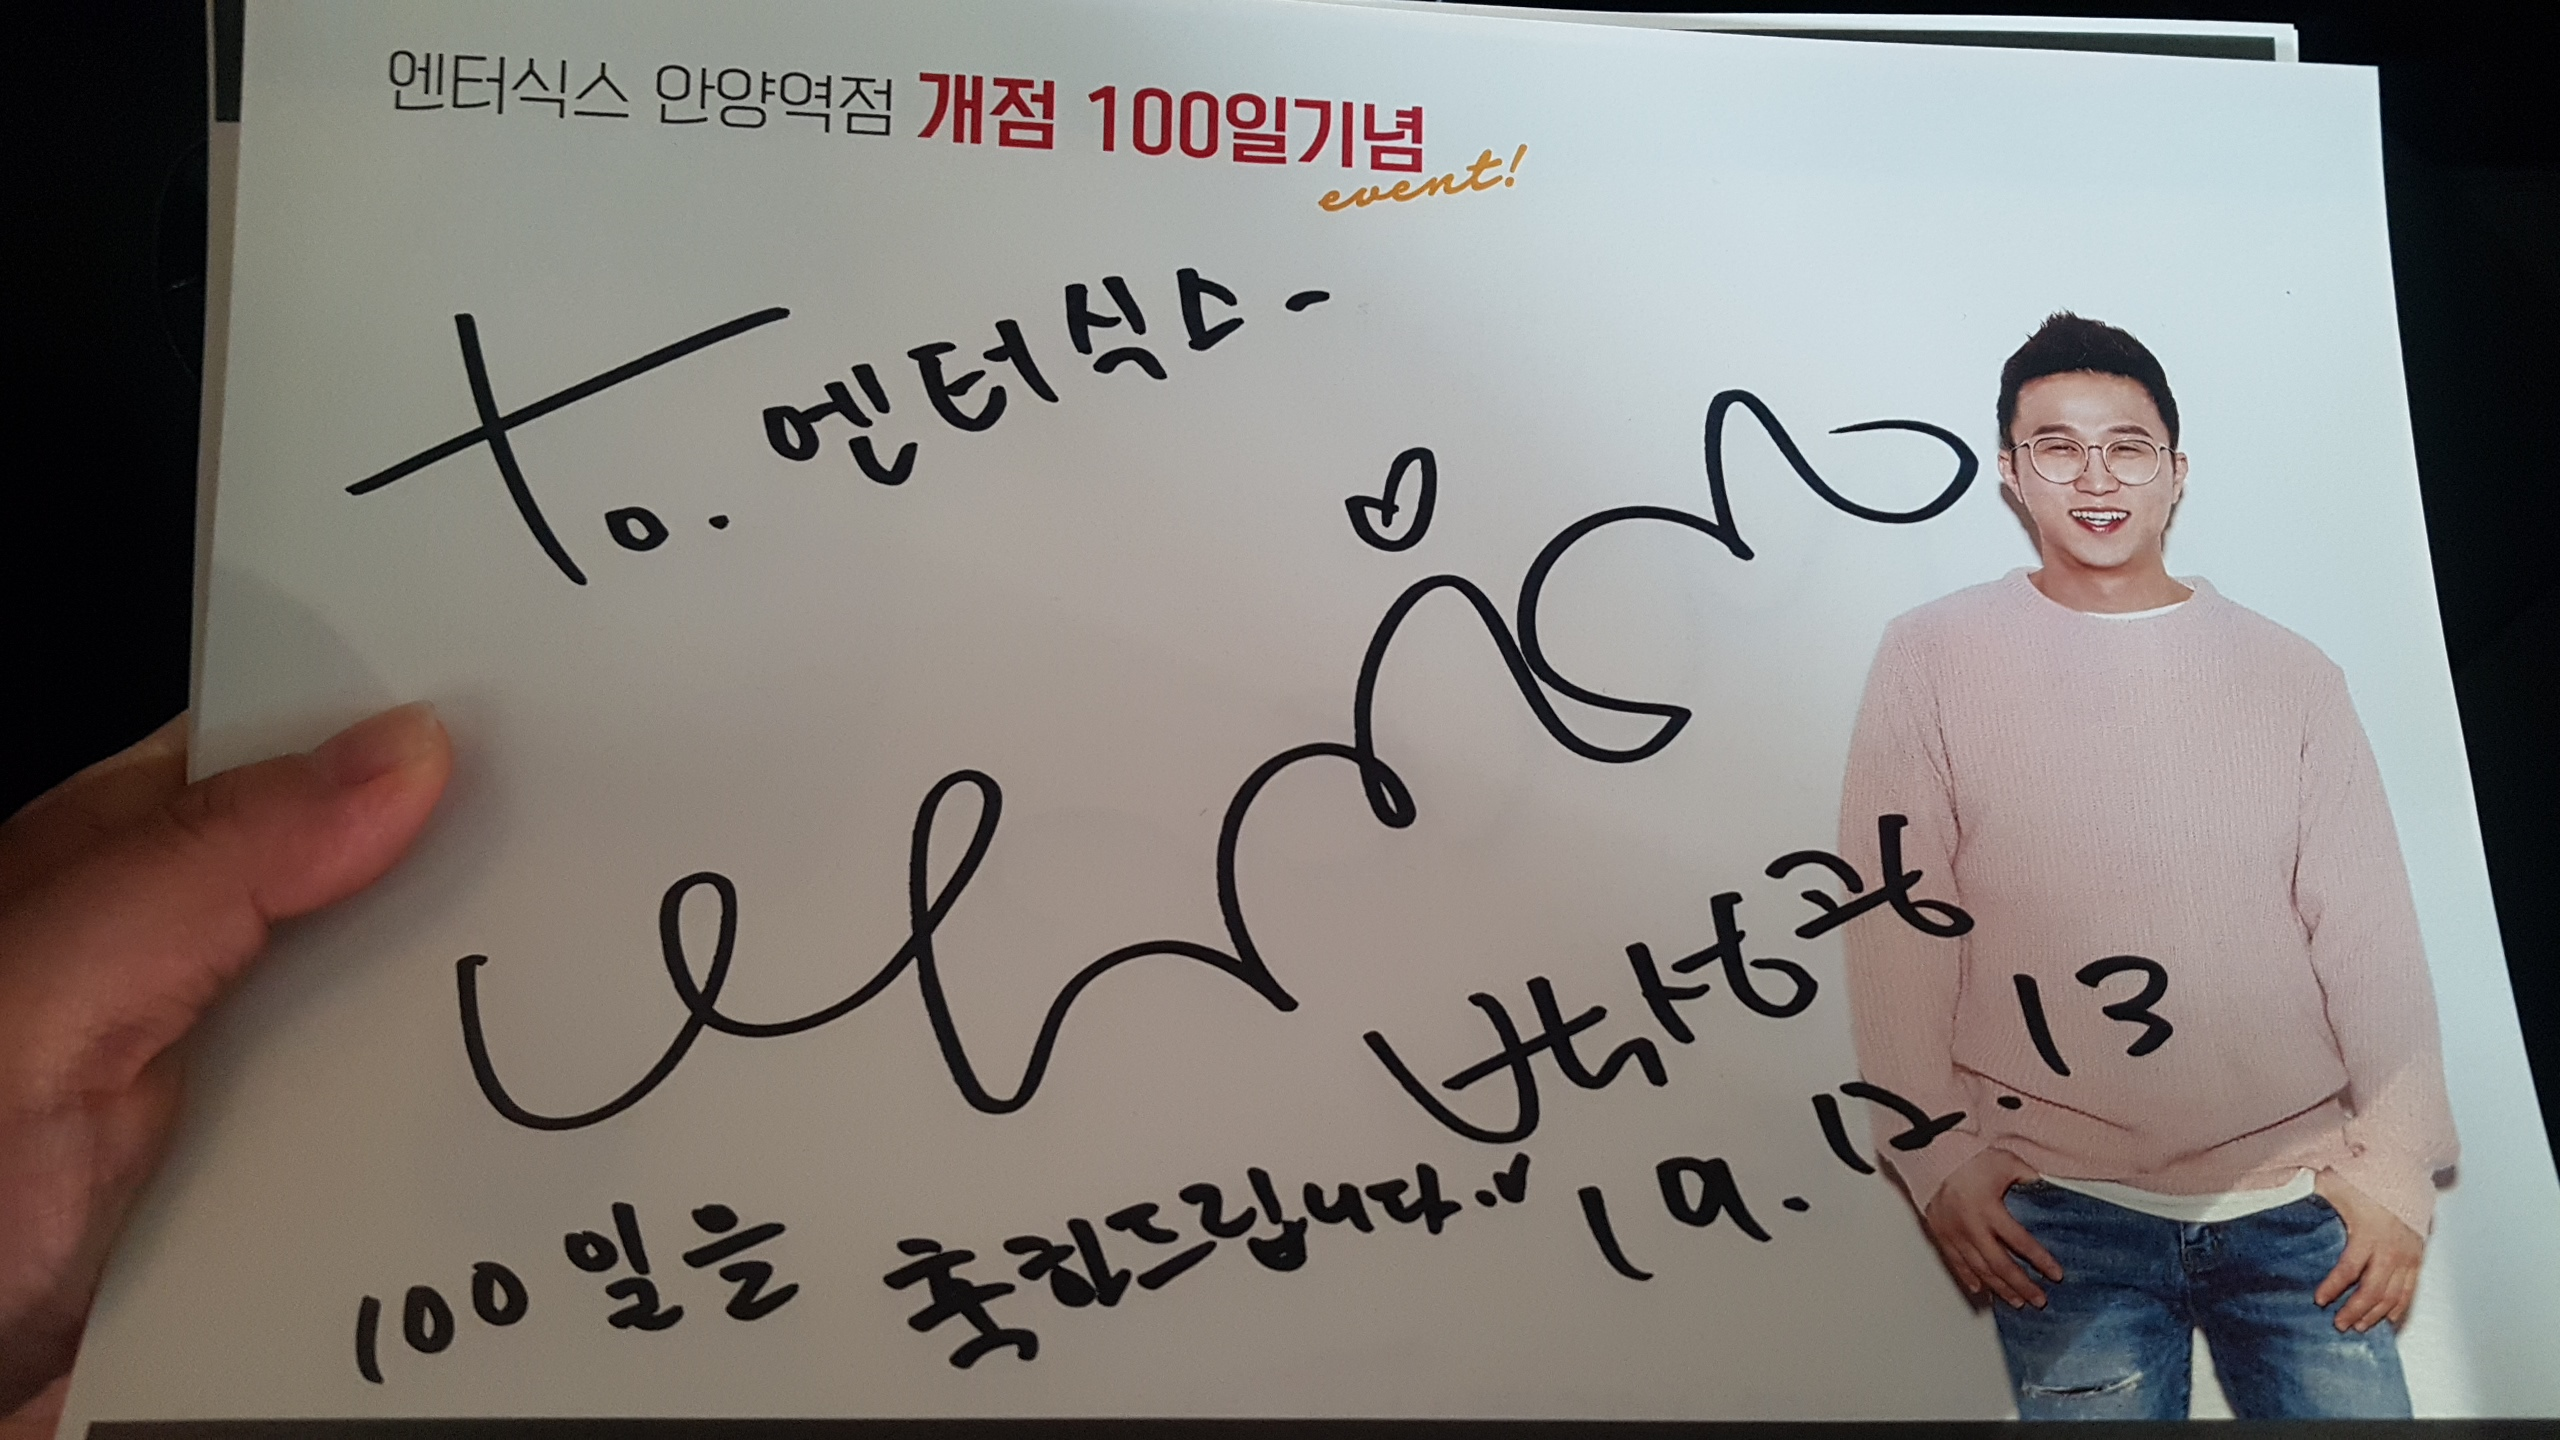 엔터식스 안양역점 개점 100일기념
event!
To. 엔터식스-
박성광
19. 12. 13
100일을 축하드립니다..